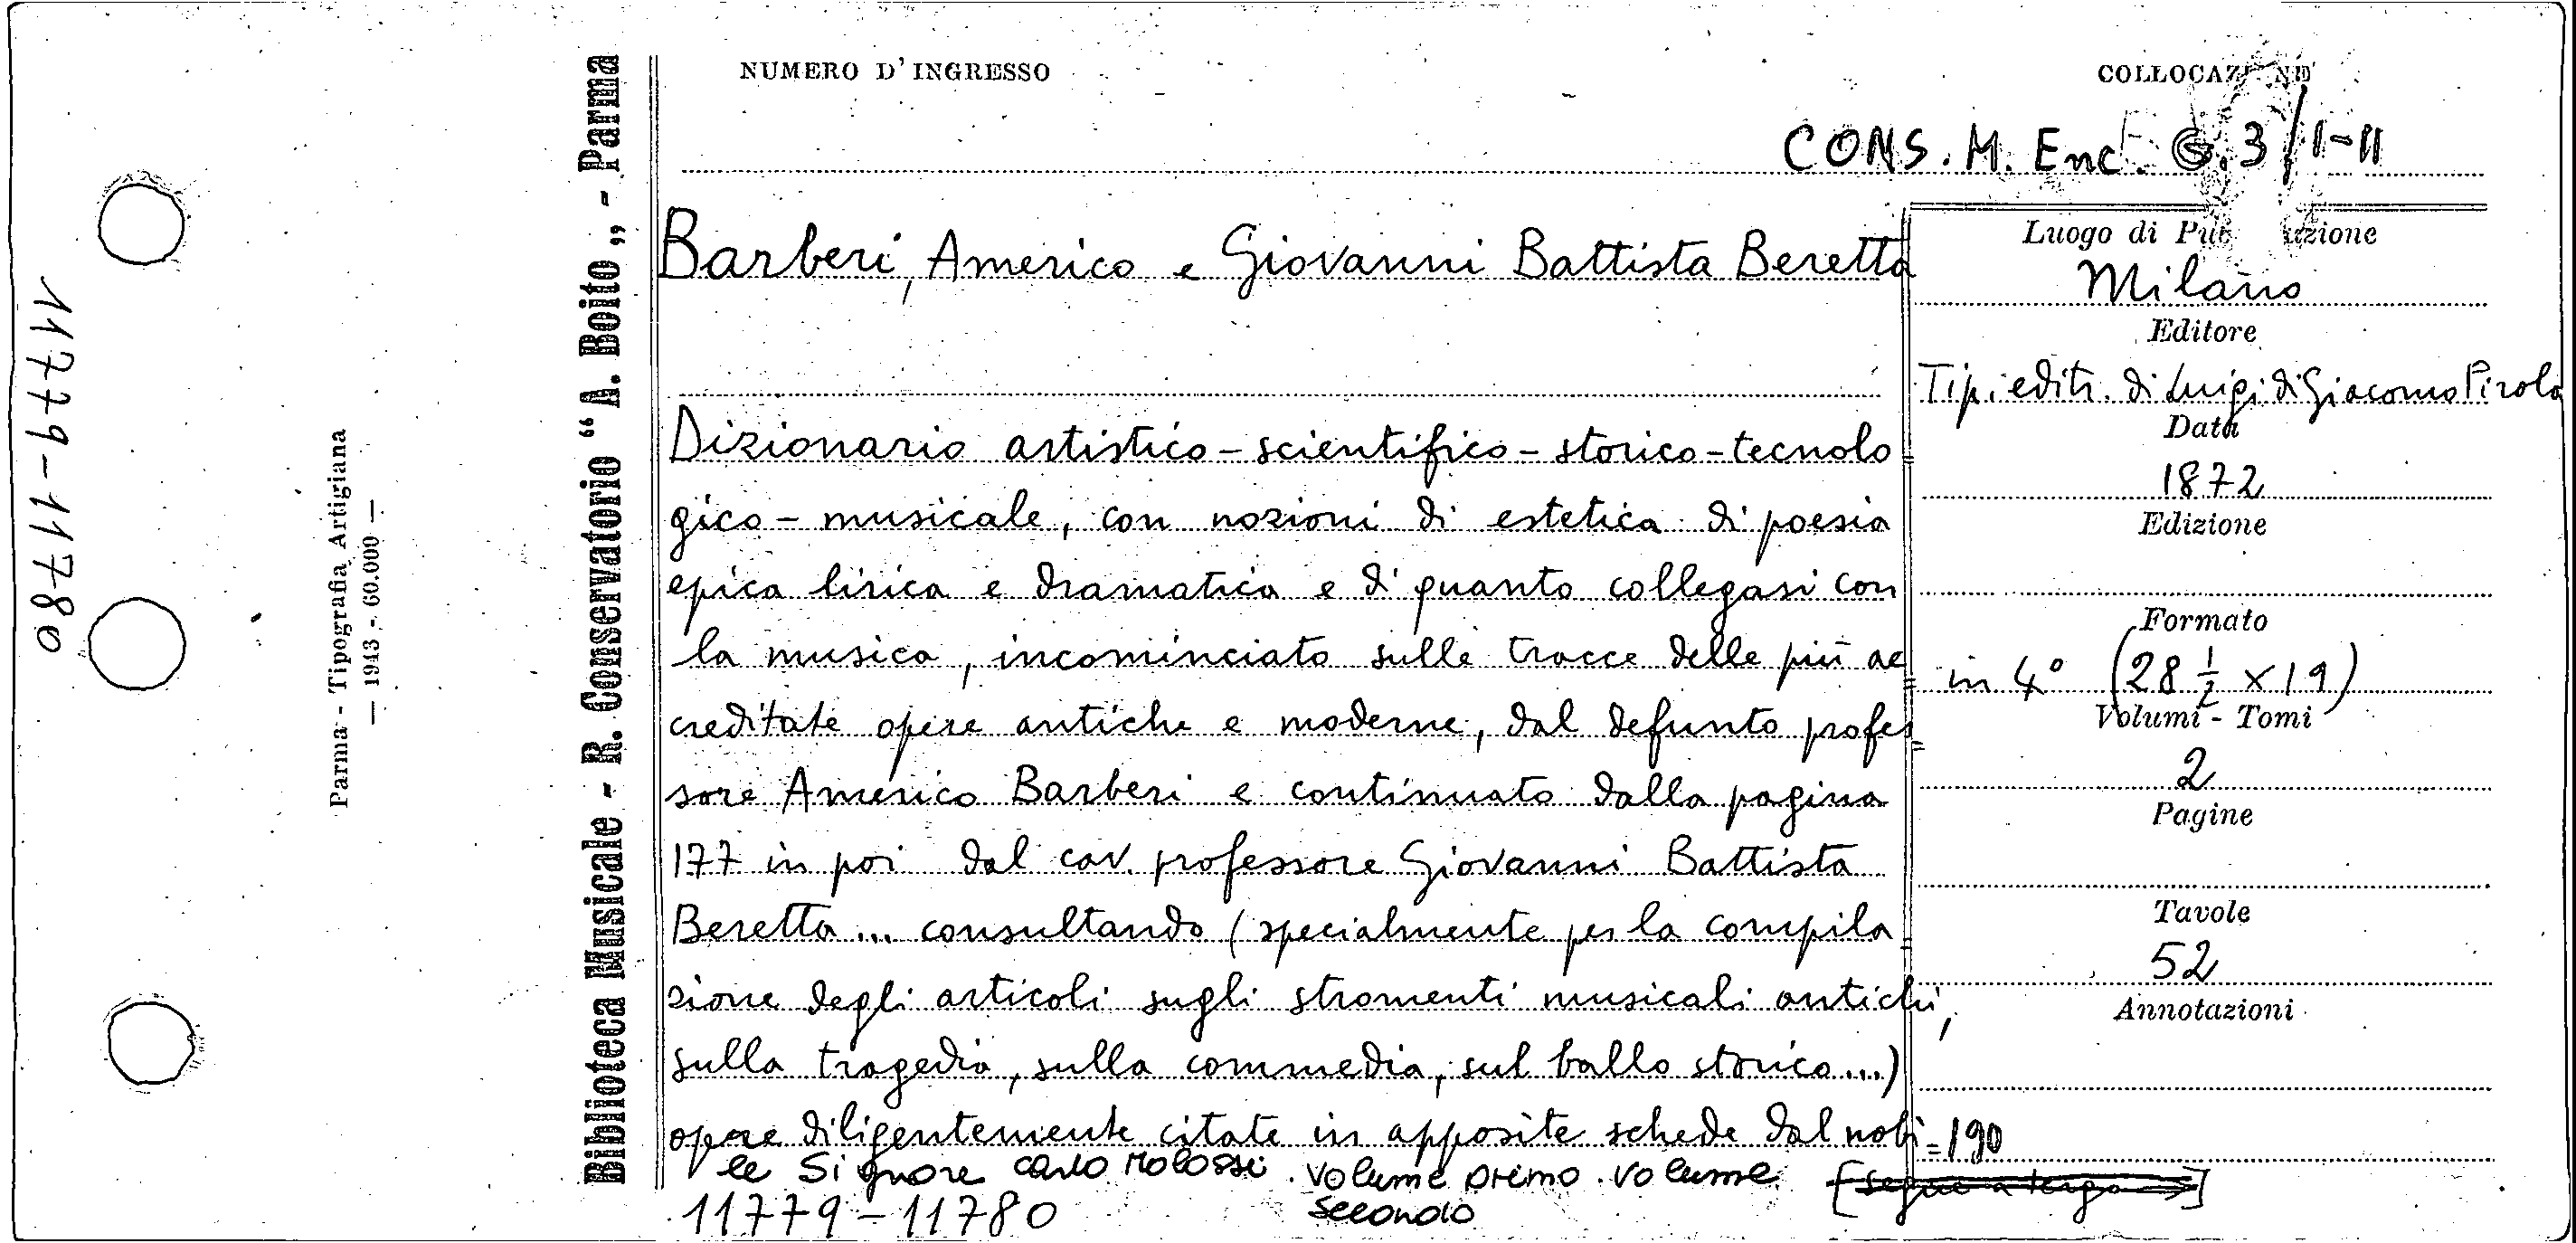 NUMERO D'INGRESSO
COLLOCAZIONE
CONS. M. Enc. G.3/I-II
Barberi, Americo e Giovanni Battista Beretta
Dizionario artistico-scientifico-storico-tecnolo
gico-musicale, con nozioni di estetica di poesia
epica lirica e dramatica e di quanto collegasi con
la musica, incominciato sulle tracce delle più ac=
creditate opere antiche e moderne, dal defunto profes=
sore Americo Barberi e continuato dalla pagina
177 in poi dal cav. professore Giovanni Battista
Beretta ... consultando (specialmente per la compila=
zione degli articoli sugli stromenti musicali antichi,
sulla tragedia, sulla commedia, sul ballo storico...)
opere diligentemente citate in apposite schede dal nobi=
le Signore Carlo Molossi. Volume primo. Volume
secondo
[segue a tergo →]
11779-11780
Luogo di Pubblicazione
Milano
Editore
Tip. editr. di Luigi di Giacomo Pirola
Data
1872
Edizione
Formato
in 4° (28 1/2 × 19)
Volumi - Tomi
2
Pagine
Tavole
52
Annotazioni
190
Biblioteca Musicale - R. Conservatorio "A. Boito„ - Parma
Parma - Tipografia Artigiana
— 1943 - 60.000 —
11779-11780